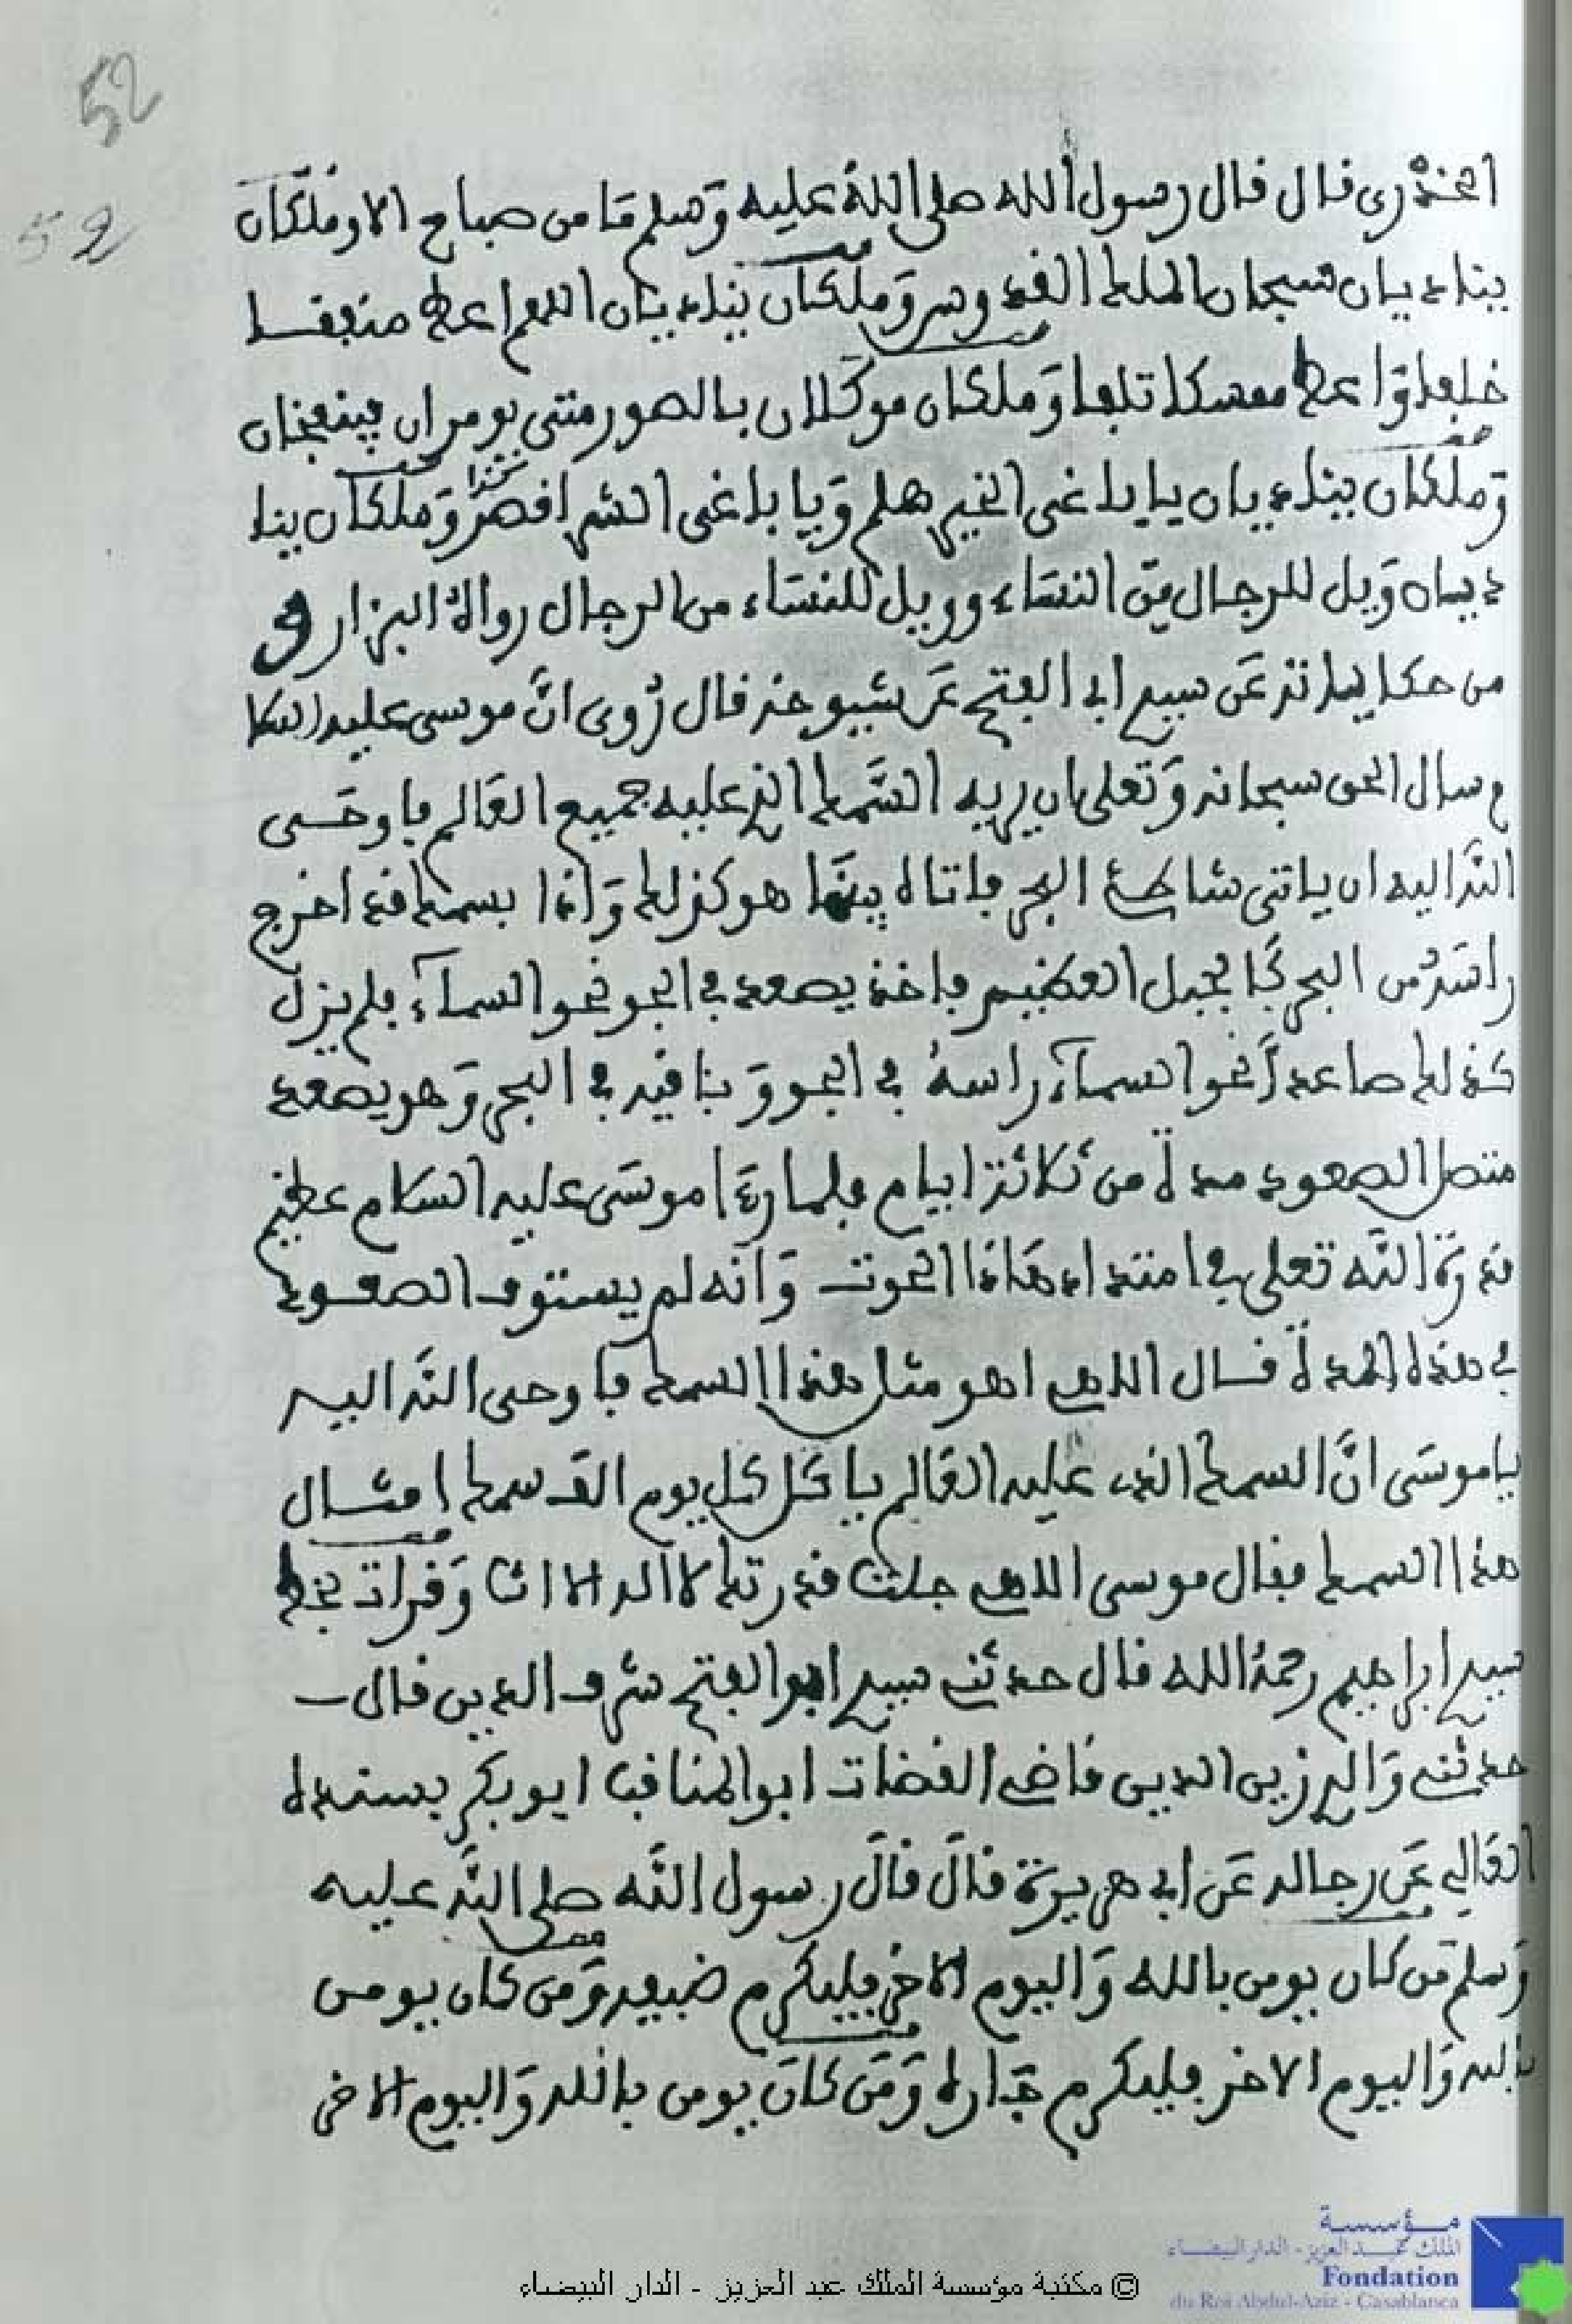 52
52
الخذري قال قال رسول الله صلى الله عليه وسلم ما من صباح الا وملكان
يناديان سبحان الملك القدوس وملكان يناديان اللهم اعط منفقا
خلفا واعط ممسكا تلفا وملكان موكلان بالصور متى يومران فينفخان
وملكان يناديان يا باغي الخير هلم ويا باغي الشر اقصر وملكان ينا
ديان ويل للرجال من النساء وويل للنساء من الرجال رواه البزار و
من حكاياته عن سيدي ابي الفتح عن شيوخه قال روي ان موسى عليه السلا
م سال الحق سبحانه وتعلى ان يريه السمك الذي عليه جميع العالم فاوحى
الله اليه ان ياتي شاطئ البحر فاتاه بينما هو كذلك واذا بسمك قد اخرج
راسه من البحر كالجبل العظيم فاخذ يصعد في الجو نحو السماء فلم يزل
كذلك صاعدا نحو السماء راسه في الجو وباقيه في البحر وهو يصعد
متصل الصعود مدة من ثلاثة ايام فلما رءا موسى عليه السلام عظيم
قدرة الله تعلى في امتداد هاذا الحوت وانه لم يستوف الصعود
في هذه المدة قال الاهي اهو مثل هذا السمك فاوحى الله اليه
يا موسى ان السمك الذي عليه العالم ياكل كل يوم الف سمك امثال
هذا السمك فقال موسى الاهي جلت قدرتك لا اله الا انت وقرات بخط
سيدي ابراهيم رحمه الله قال حدثني سيدي ابو الفتح شرف الدين قال
حدثني والدي زين الدين قاضي القضات ابو المناقب ابو بكر بسنده
العالي عن رجاله عن ابي هريرة قال قال رسول الله صلى الله عليه
وسلم من كان يومن بالله واليوم الاخر فليكرم ضيفه ومن كان يومن
بالله واليوم الاخر فليكرم جاره ومن كان يومن بالله واليوم الاخر
مؤسسة
الملك عبد العزيز - الدار البيضاء
Fondation
du Roi Abdul-Aziz - Casablanca
© مكتبة مؤسسة الملك عبد العزيز - الدار البيضاء